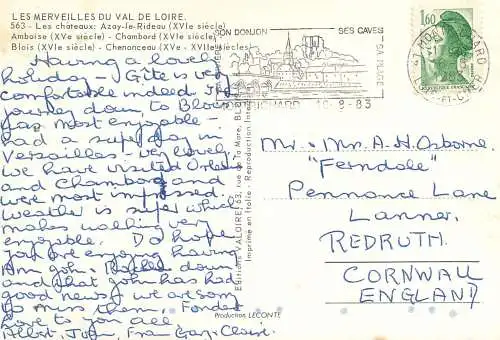 LES MERVEILLES DU VAL DE LOIRE.
563 - Les châteaux: Azay-le-Rideau (XVIe siècle)
Amboise (XVe siècle) - Chambord (XVIe siècle)
Blois (XVIe siècle) - Chenonceau (XVe - XVIe siècles)
Having a lovely
holiday - Gîte is very
comfortable indeed. The
journey down to Blois
was most enjoyable -
had a super stay in
Versailles - very lovely
We have visited Orleans
and Chambord and
were most impressed.
Weather is super which
makes walking very
enjoyable. Do hope
you are enjoying having
Ann John down
and that John has had
good news, we are sorry
to miss them. Fondest
love to you all
Albert, Joan, Fran Gary. Claire.
Editions VALOIRE, 65, rue de la Mare, BLOIS
Imprimé en Italie - Reproduction
Production LECONTE
SON DONJON SES CAVES
SA PLAGE
RICHARD 10-8-83
1,60
Mr. Mrs. A. H. Osborne.
"Ferndale"
Pennance Lane
Lanner.
REDRUTH.
CORNWALL
ENGLAND